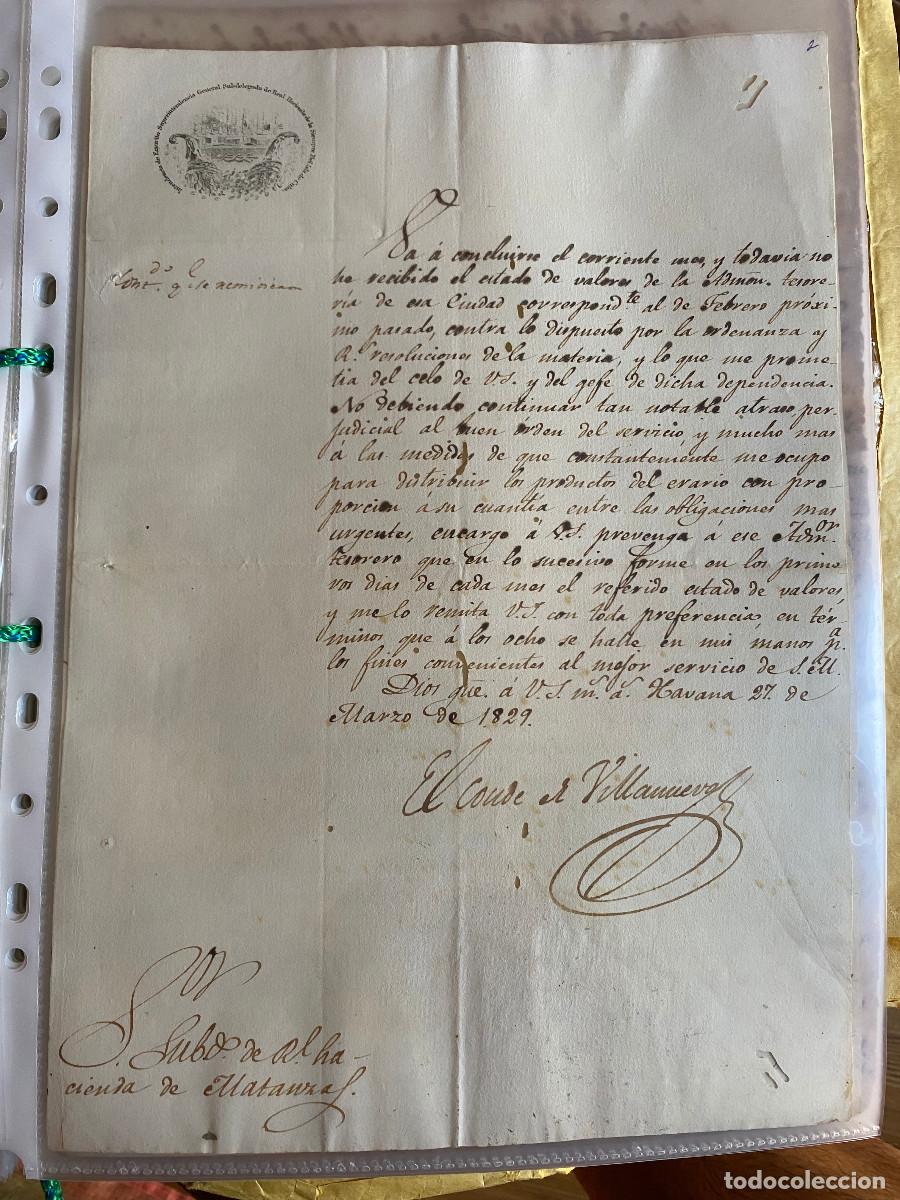 2
Intendencia de Egército Superintendencia General Subdelegada de Real Hacienda de la Siempre Fiel Isla de Cuba
Va á concluirse el corriente mes, y todavia no
he recibido el estado de valores de la Admon. tesore-
ria de esa Ciudad correspondte. al de Febrero próxi-
mo pasado, contra lo dispuesto por la ordenanza y
Rs. resoluciones de la materia, y lo que me prome-
tia del celo de VS. y del gefe de dicha dependencia.
No debiendo continuar tan notable atraso, per-
judicial al buen órden del servicio, y mucho mas
á las medidas de que constantemente me ocupo
para distribuir los productos del erario con pro-
porcion á su cuantia entre las obligaciones mas
urgentes, encargo á V.S. prevenga á ese Admor.
tesorero que en lo sucesivo forme en los prime-
ros dias de cada mes el referido estado de valores,
y me lo remita V.S. con toda preferencia, en tér-
minos que á los ocho se halle en mis manos pa.
los fines convenientes al mejor servicio de S.M.
Dios gue. á V.S. ms. as. Havana 27. de
Marzo de 1829.
El Conde de Villanueva
Sor.
S. Subdo. de Rl. ha-
cienda de Matanzas.
todocoleccion